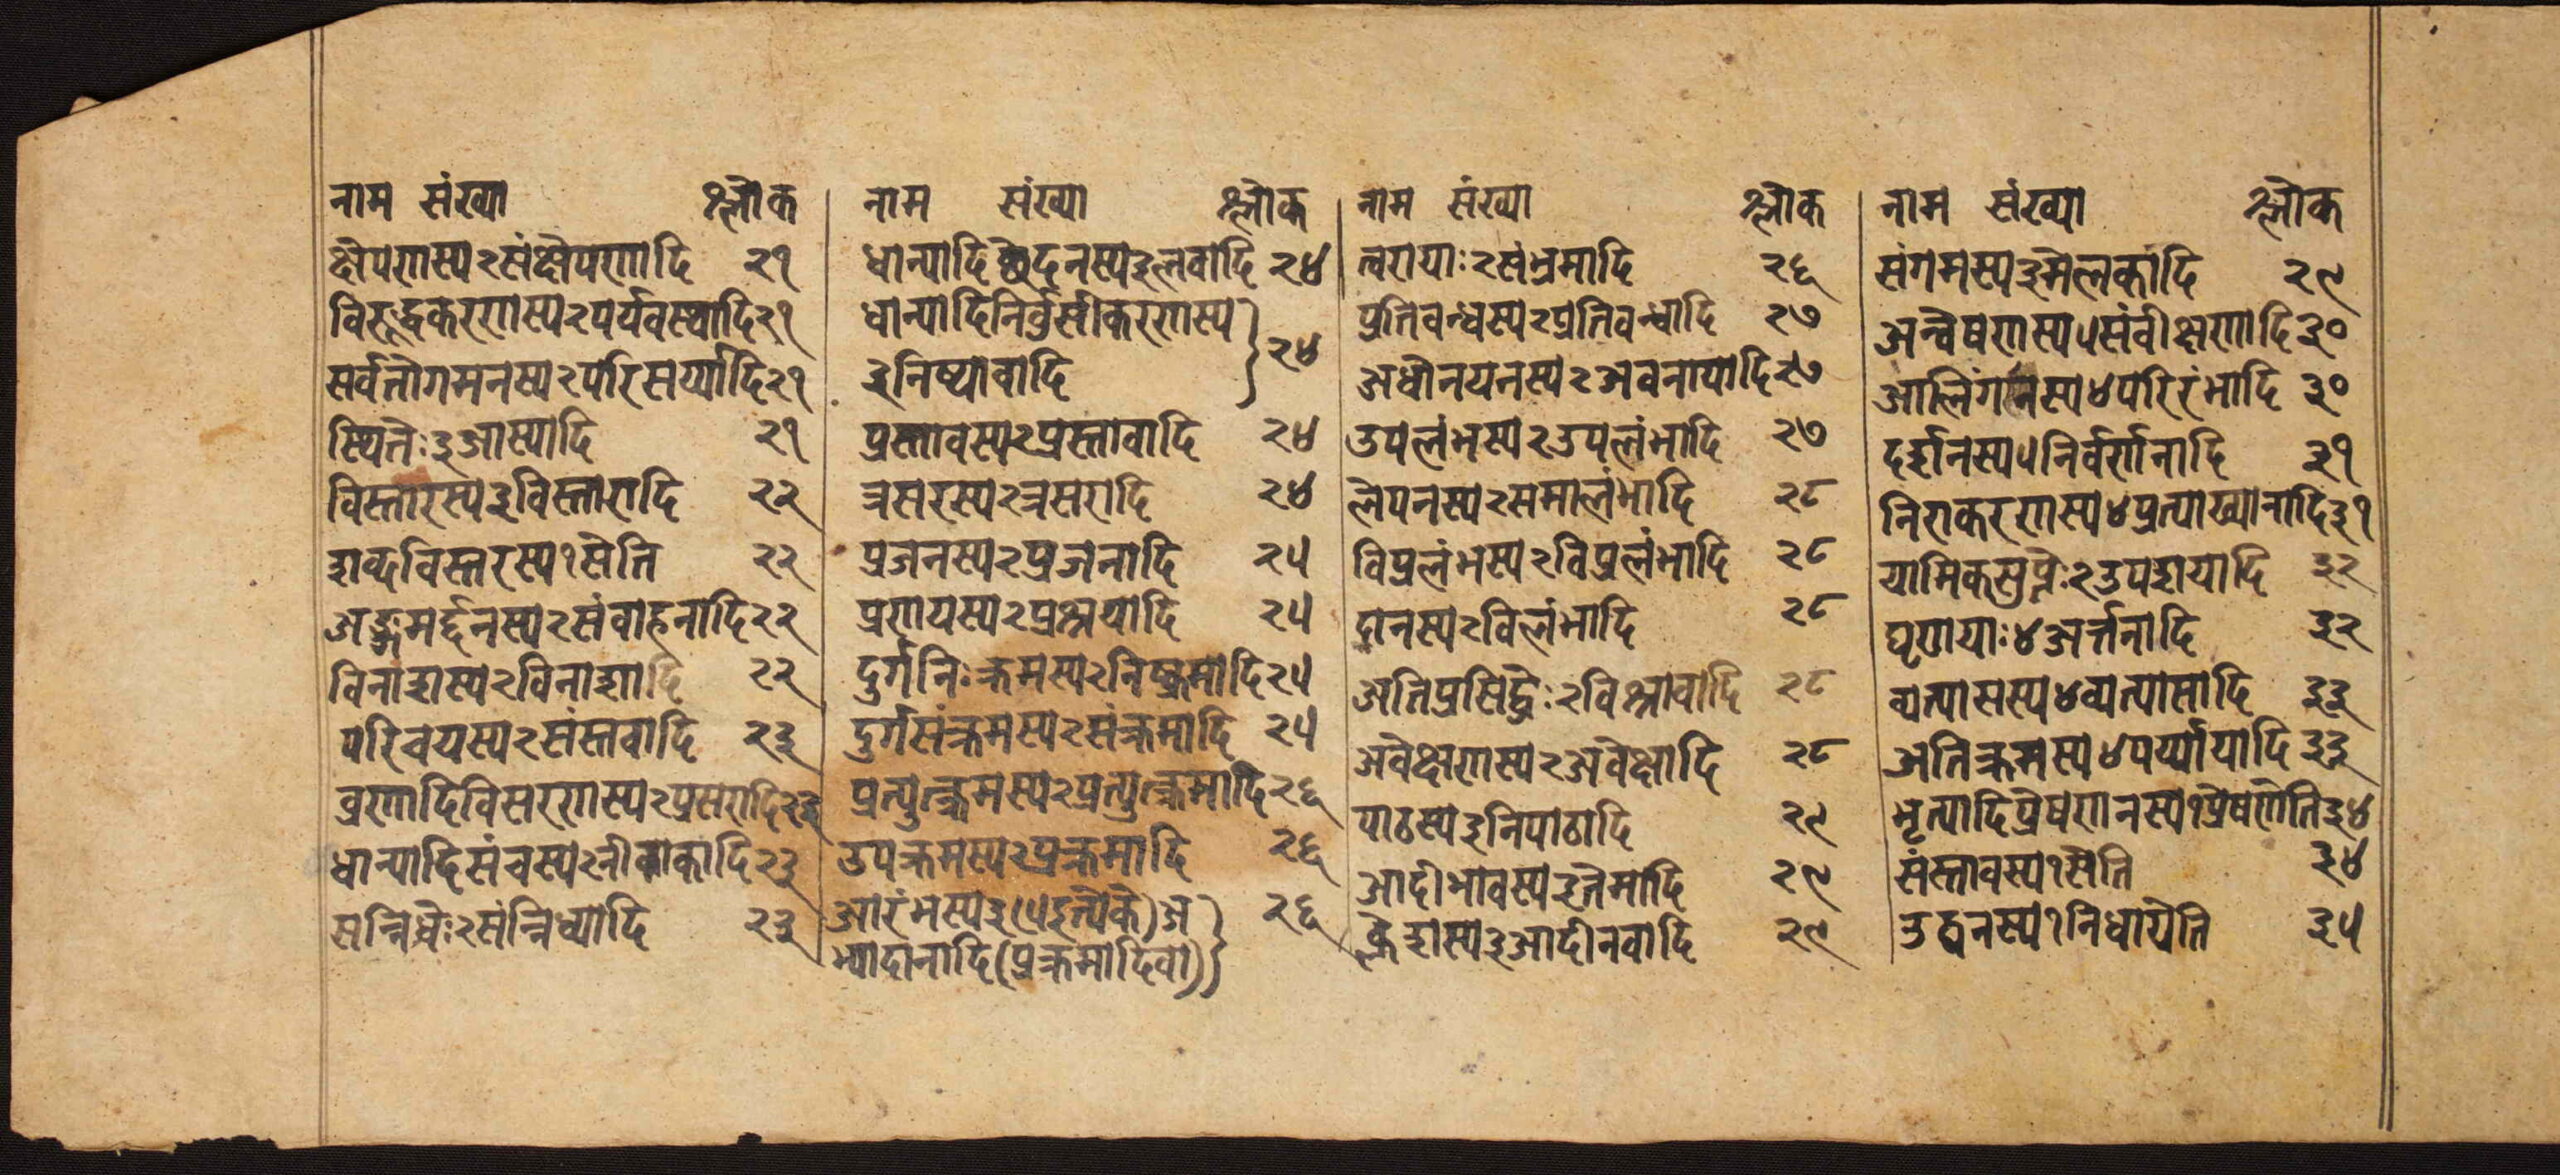 नाम संख्या श्लोक
क्षेपणस्य २ संक्षेपणादि २१
विरूद्धकरणस्य २ पर्यवस्थादि २१
सर्वतोगमनस्य २ परिसर्य्यादि २१
स्थितेः ३ आस्यादि २१
विस्तारस्य ३ विस्तारादि २२
शब्दविस्तरस्य १ सेति २२
अङ्गमर्द्दनस्य २ संवाहनादि २२
विनाशस्य २ विनाशादि २२
परिचयस्य २ संस्तवादि २३
व्रणादिविसरणस्य २ प्रसरादि २३
धान्यादिसंचस्य २ नीवाकादि २३
सन्निधेः २ संन्निध्यादि २३
नाम संख्या श्लोक
धान्यादिछेदनस्य ३ लवादि २४
धान्यादिनिर्वुसीकरणस्य
३ निष्पावादि २४
प्रस्तावस्य २ प्रस्तावादि २४
त्रसरस्य २ त्रसरादि २४
प्रजनस्य २ प्रजनादि २५
प्रणयस्य २ प्रश्नयादि २५
दुर्गनिःक्रमस्य २ निष्क्रमादि २५
दुर्गसंक्रमस्य २ संक्रमादि २५
प्रत्युत्क्रमस्य २ प्रत्युत्क्रमादि २६
उपक्रमस्य २ प्रक्रमादि २६
आरंभस्य ३ (५ इत्येके) अ २६
भ्यादानादि (प्रक्रमादिवा)
नाम संख्या श्लोक
त्वरायाः २ संभ्रमादि २६
प्रतिवन्धस्य २ प्रतिवन्धादि २७
अधोनयनस्य २ अवनायादि २७
उपलंभस्य २ उपलंभादि २७
लेपनस्य २ समालंभादि २८
विप्रलंभस्य २ विप्रलंभादि २८
दानस्य २ विलंभादि २८
अतिप्रसिद्धेः २ विश्नावादि २८
अवेक्षणस्य २ अवेक्षादि २८
पाठस्य ३ निपाठादि २९
आर्दीभावस्य २ तेमादि २९
क्लेशस्य ३ आदीनवादि २९
नाम संख्या श्लोक
संगमस्य ३ मेलकादि २९
अन्वेषणस्य ५ संवीक्षणादि ३०
आलिंगनस्य ४ परिरंभादि ३०
दर्शनस्य ५ निर्वर्णनादि ३१
निराकरणस्य ४ प्रत्याख्यानादि ३१
यामिकसुप्तेः २ उपशायादि ३२
घृणायाः ४ अर्त्तनादि ३२
व्यत्यासस्य ४ व्यत्यासादि ३३
अतिक्रमस्य ४ पर्य्यायादि ३३
भृत्यादिप्रेषणनस्य १ प्रेषणेति ३४
संस्तावस्य १ सेति ३४
उद्घनस्य १ निधायेति ३५